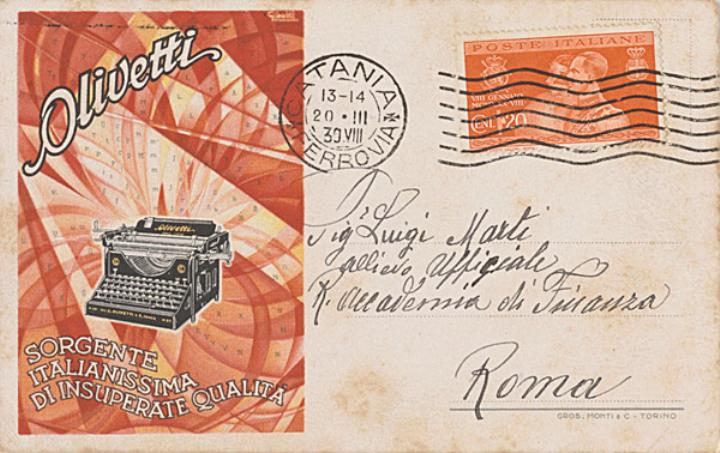 Olivetti
Olivetti
SORGENTE
ITALIANISSIMA
DI INSUPERATE QUALITÀ
CATANIA
13-14
20 • III
30 VIII
FERROVIA
POSTE ITALIANE
VIII GENNAIO
CENT. 20
Sig Luigi Marti
allievo Ufficiale
R. Accademia di Finanza
Roma
GROS, MONTI & C - TORINO